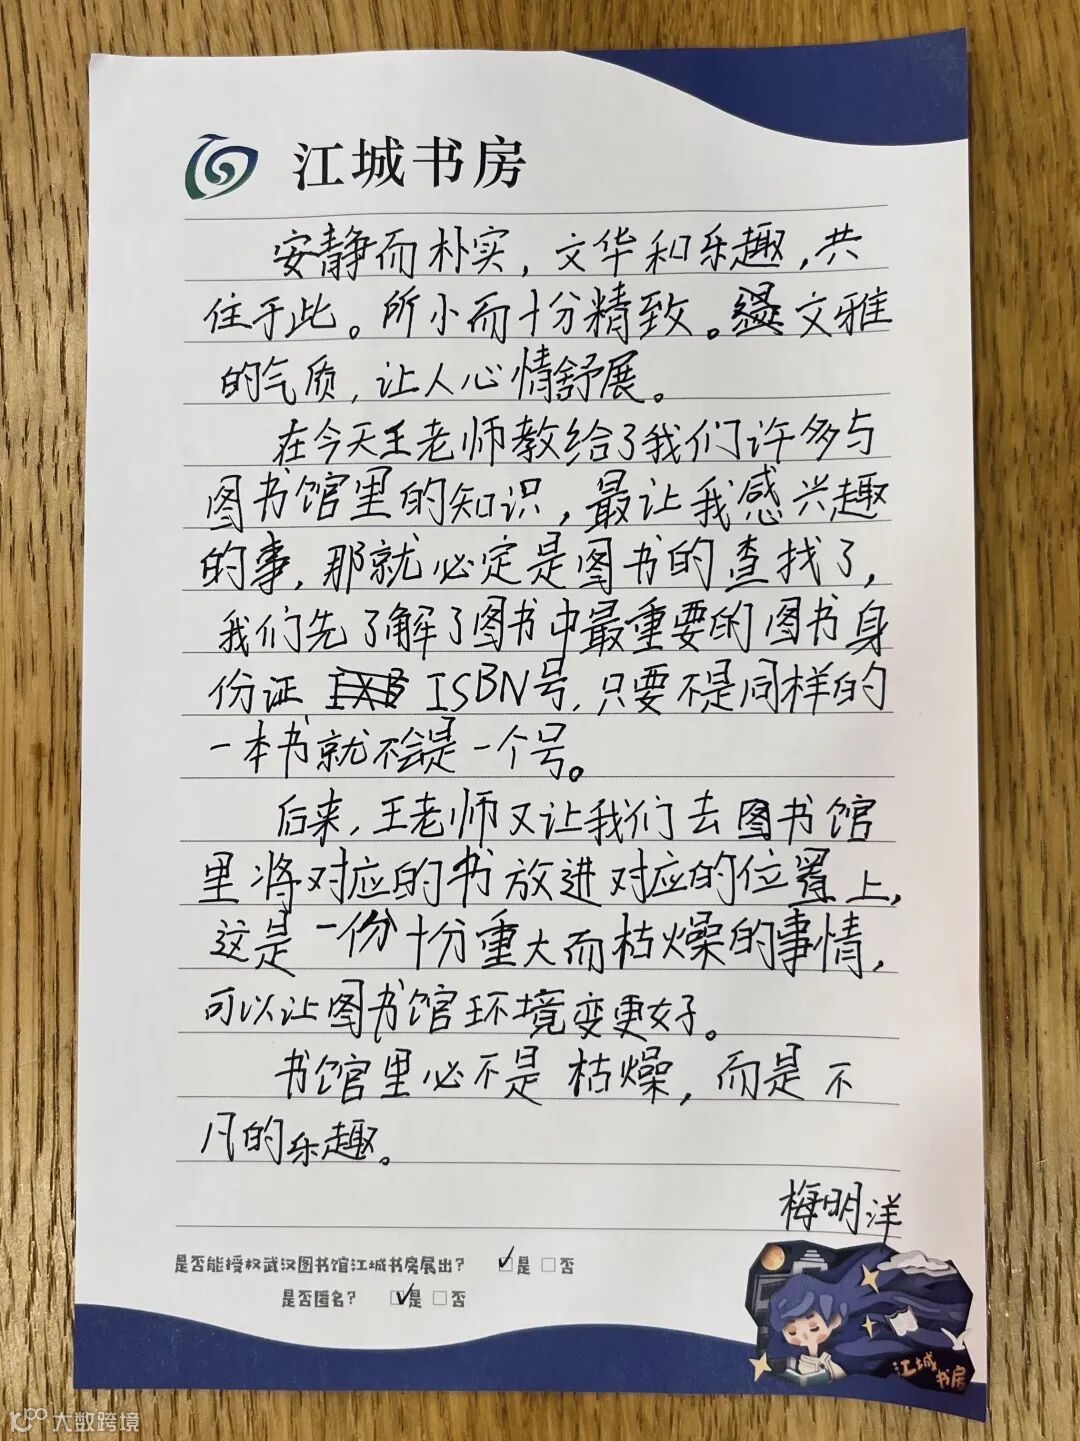 江城书房
安静而朴实，文华和乐趣，共
住于此。所小而十分精致。文雅
的气质，让人心情舒展。
在今天王老师教给了我们许多与
图书馆里的知识，最让我感兴趣
的事，那就必定是图书的查找了，
我们先了解了图书中最重要的图书身
份证 ISBN号，只要不是同样的
一本书就不会是一个号。
后来，王老师又让我们去图书馆
里将对应的书放进对应的位置上，
这是一份十分重大而枯燥的事情，
可以让图书馆环境变更好。
书馆里必不是枯燥，而是不
凡的乐趣。
梅明洋
是否能授权武汉图书馆江城书房展出？ ☑是 □否
是否匿名？ ☑是 □否
江城
书房
大数跨境